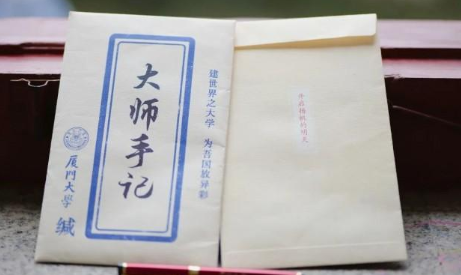 大师手记
建世界之大学 为吾国放异彩
厦门大学 缄